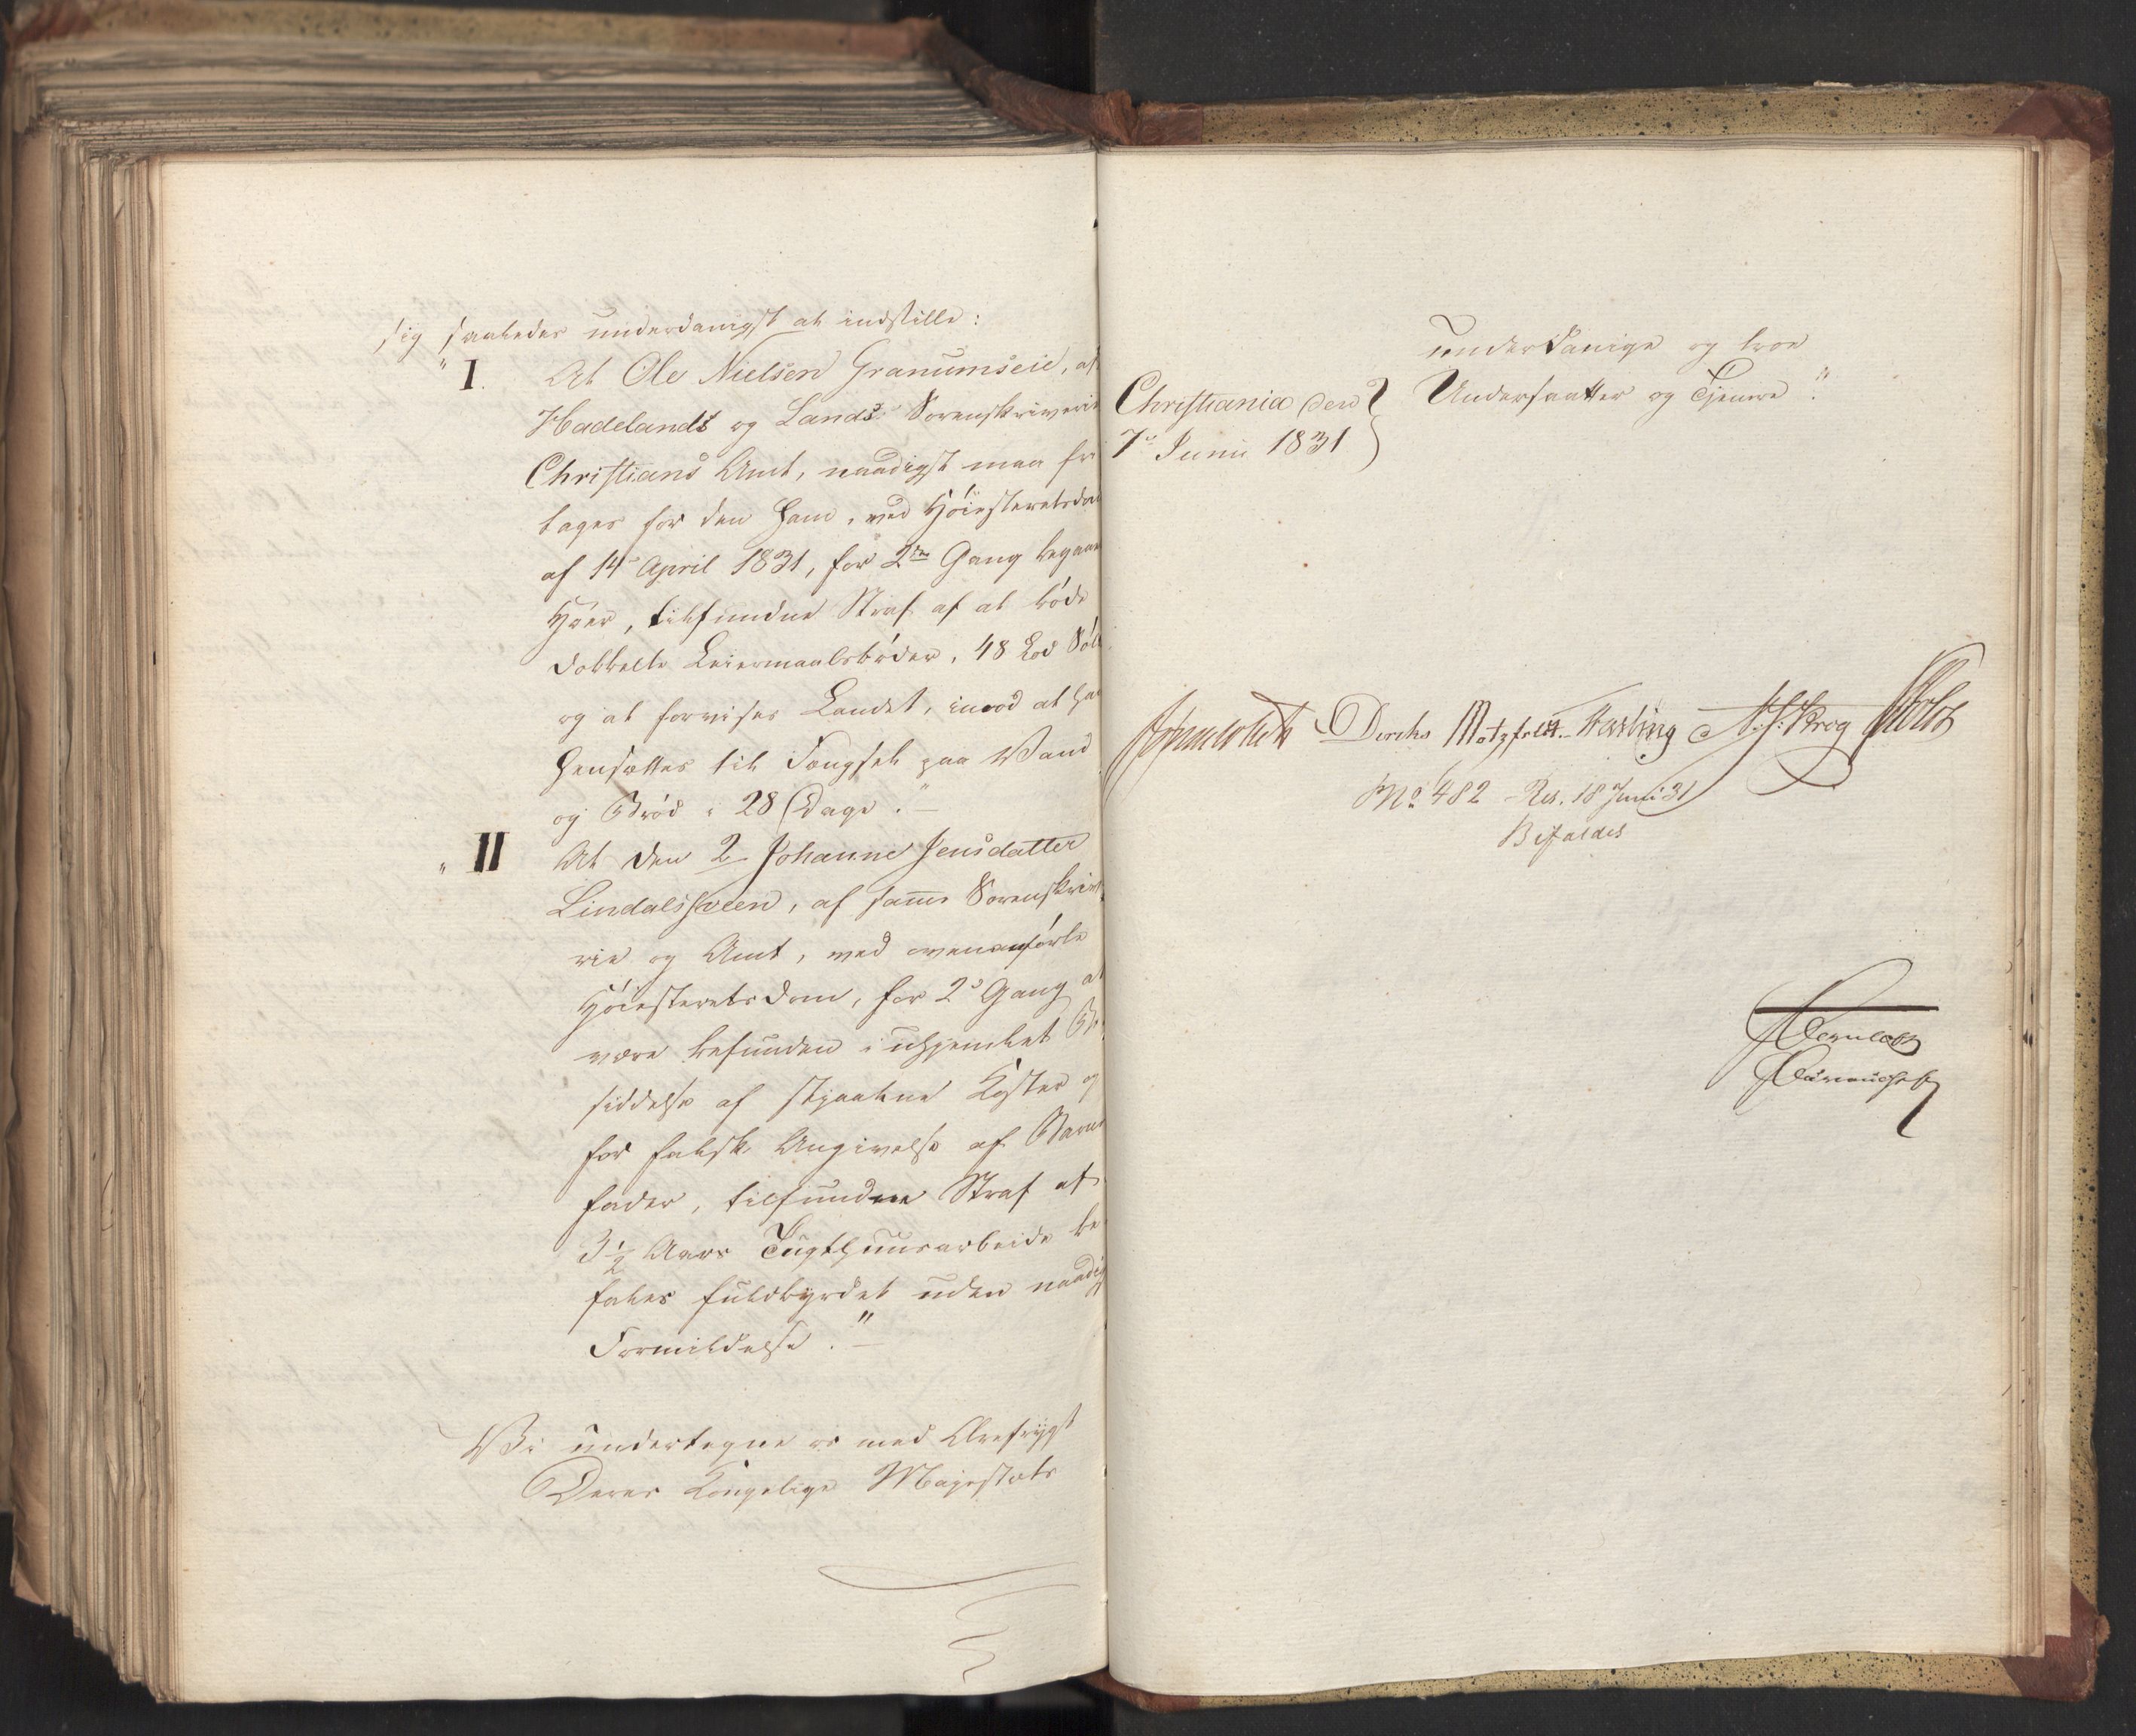 sig saaledes underdanigst at indstille:
"I. At Ole Nielsen Granumseie, af
Hadelands og Lands Sorenskriverie
Christians Amt, naadigst maa fri
tages for den ham, ved Høiesteretsdom
af 14 April 1831, for 2den Gang begaaet
Hoer, tilfundne Straf af at bøde
dobbelte Leiermaalsbøder, 48 Lod Sølv
og at forvises Landet, imod at han
hensættes til Fængsel paa Vand
og Brød i 28 Dage."
"II At den Johanne Jensdatter
Lindalsqveen, af samme Sorenskrive
rie og Amt, ved ovenanførte
Høiesteretsdom, for 2d Gang at
være befunden i uhjemlet Be
siddelse af stjaalne Koster og
for falsk Angivelse af Barne
fader, tilfundne Straf af
3½ Aars Tugthuusarbeide be
fales fuldbyrdet uden naadigst
Formildelse."
Vi undertegne os med Ærefrygt
Deres Kongelige Majestæts
underdanige og troe
Undersaatter og Tjenere."
Christiania den
7de Junii 1831
Diriks Motzfeldt. Fasting N. J. Krog Holst
No 482 Res. 18 Juni 31
Bifaldes